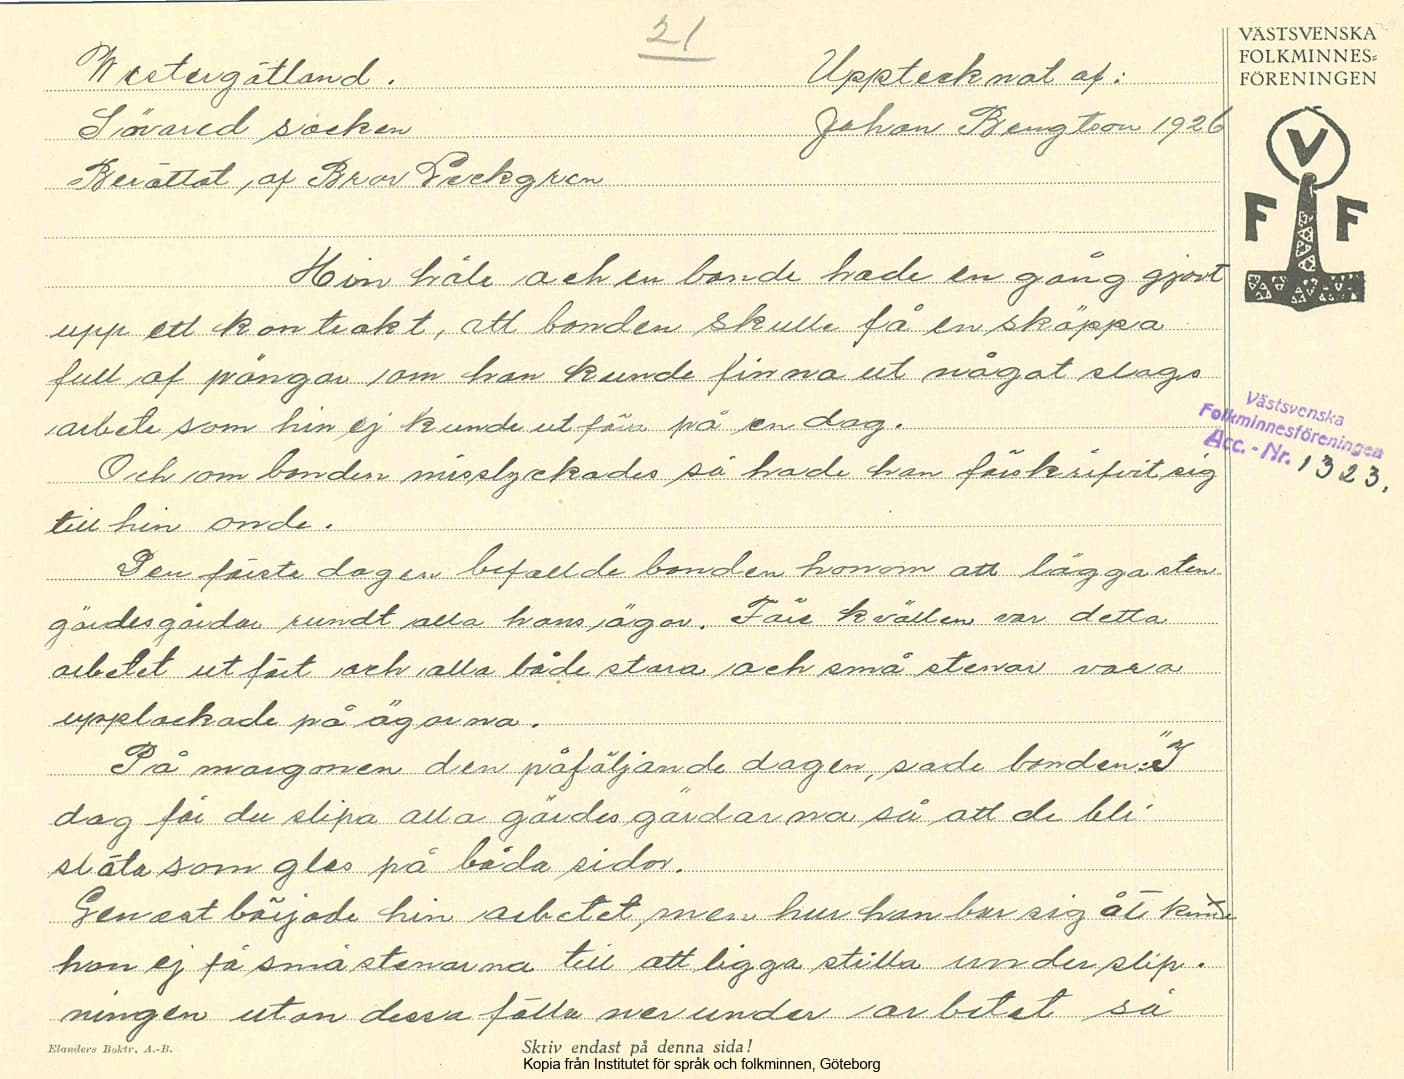 21
VÄSTSVENSKA
FOLKMINNES=
FÖRENINGEN
Westergötland. Upptecknat af:
Lövared socken Johan Bengtson 1926
Berättat af Bror
V
F F
Hin håle och en bonde hade en gång gjort
upp ett kontrakt, att bonden skulle få en skäppa
full af pängar om han kunde finna ut något slags
arbete som hin ej kunde utföra på en dag.
Och om bonden misslyckades så hade han förskrifvit sig
till hin onde.
Den förste dagen befallde bonden honom att lägga sten
gärdesgårdar rundt alla hans ägor. Före kvällen var detta
arbetet utfört och alla både stora och små stenar vara
upplockade på ägorna.
På morgonen den påföljande dagen, sade bonden: "I
dag får du slipa alla gärdesgärdarna så att de bli
släta som glas på båda sidor.
Genast började hin arbetet, men hur han bar sig åt kunde
han ej få småstenarna till att ligga stilla under slip.
ningen utan dessa falla ner under arbetet så
Västsvenska
Folkminnesföreningen
Acc. - Nr. 1323.
Elanders Boktr. A.-B.
Skriv endast på denna sida!
Kopia från Institutet för språk och folkminnen, Göteborg